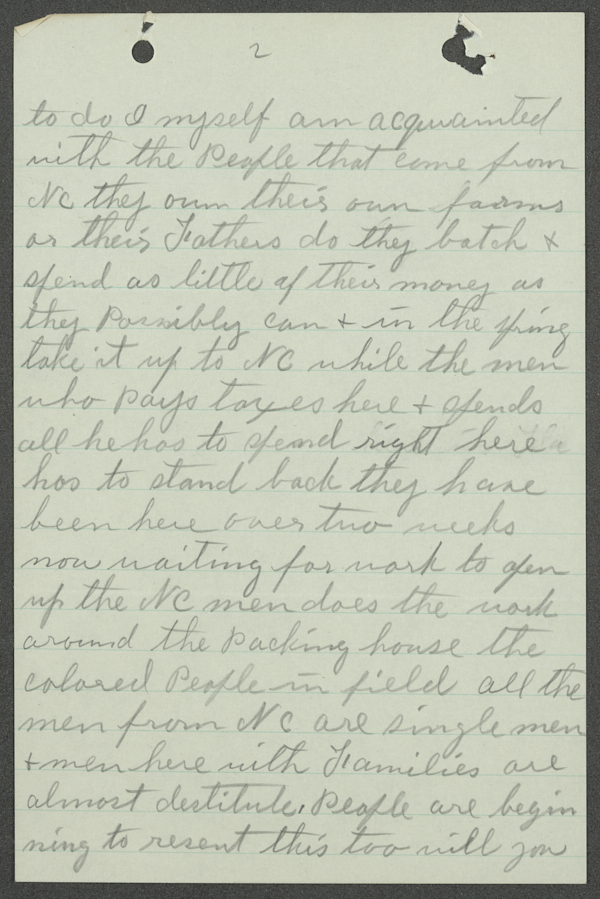 2
to do I myself am acquainted
with the People that come from
NC they own their own farms
or their Fathers do they batch &
spend as little of their money as
they Possibly can & in the spring
take it up to NC while the men
who pays taxes here & spends
all he has to spend right here
has to stand back they have
been here over two weeks
now waiting for work to open
up the NC men does the work
around the Packing house the
colored People in field all the
men from NC are single men
& men here with Families are
almost destitute. People are begin
ning to resent this too will you